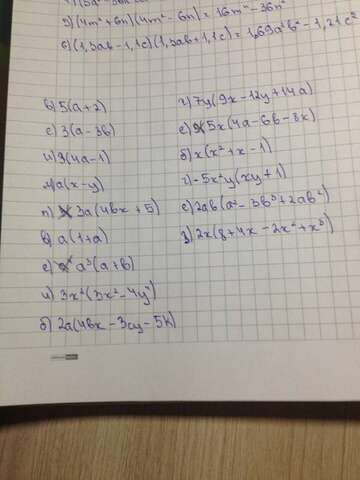 д) (4m² + 6n)(4m² - 6n) = 16m⁴ - 36n²
е) (1,3ab - 1,1c)(1,3ab + 1,1c) = 1,69a²b² - 1,21c²
в) 5(a + 2)
е) 3(a - 3b)
и) 9(4a - 1)
м) a(x - y)
п) 3a(4bx + 5)
в) a(1 + a)
е) a³(a + b)
и) 3x²(3x² - 4y²)
б) 2a(4bx - 3cy - 5k)
г) 7y(9x - 12y + 14a)
е) 5x(4a - 6b - 8k)
б) x(x² + x - 1)
г) -5x²y(xy + 1)
е) 2ab(a² - 3b³ + 2ab²)
з) 2x(8 + 4x - 2x² + x³)